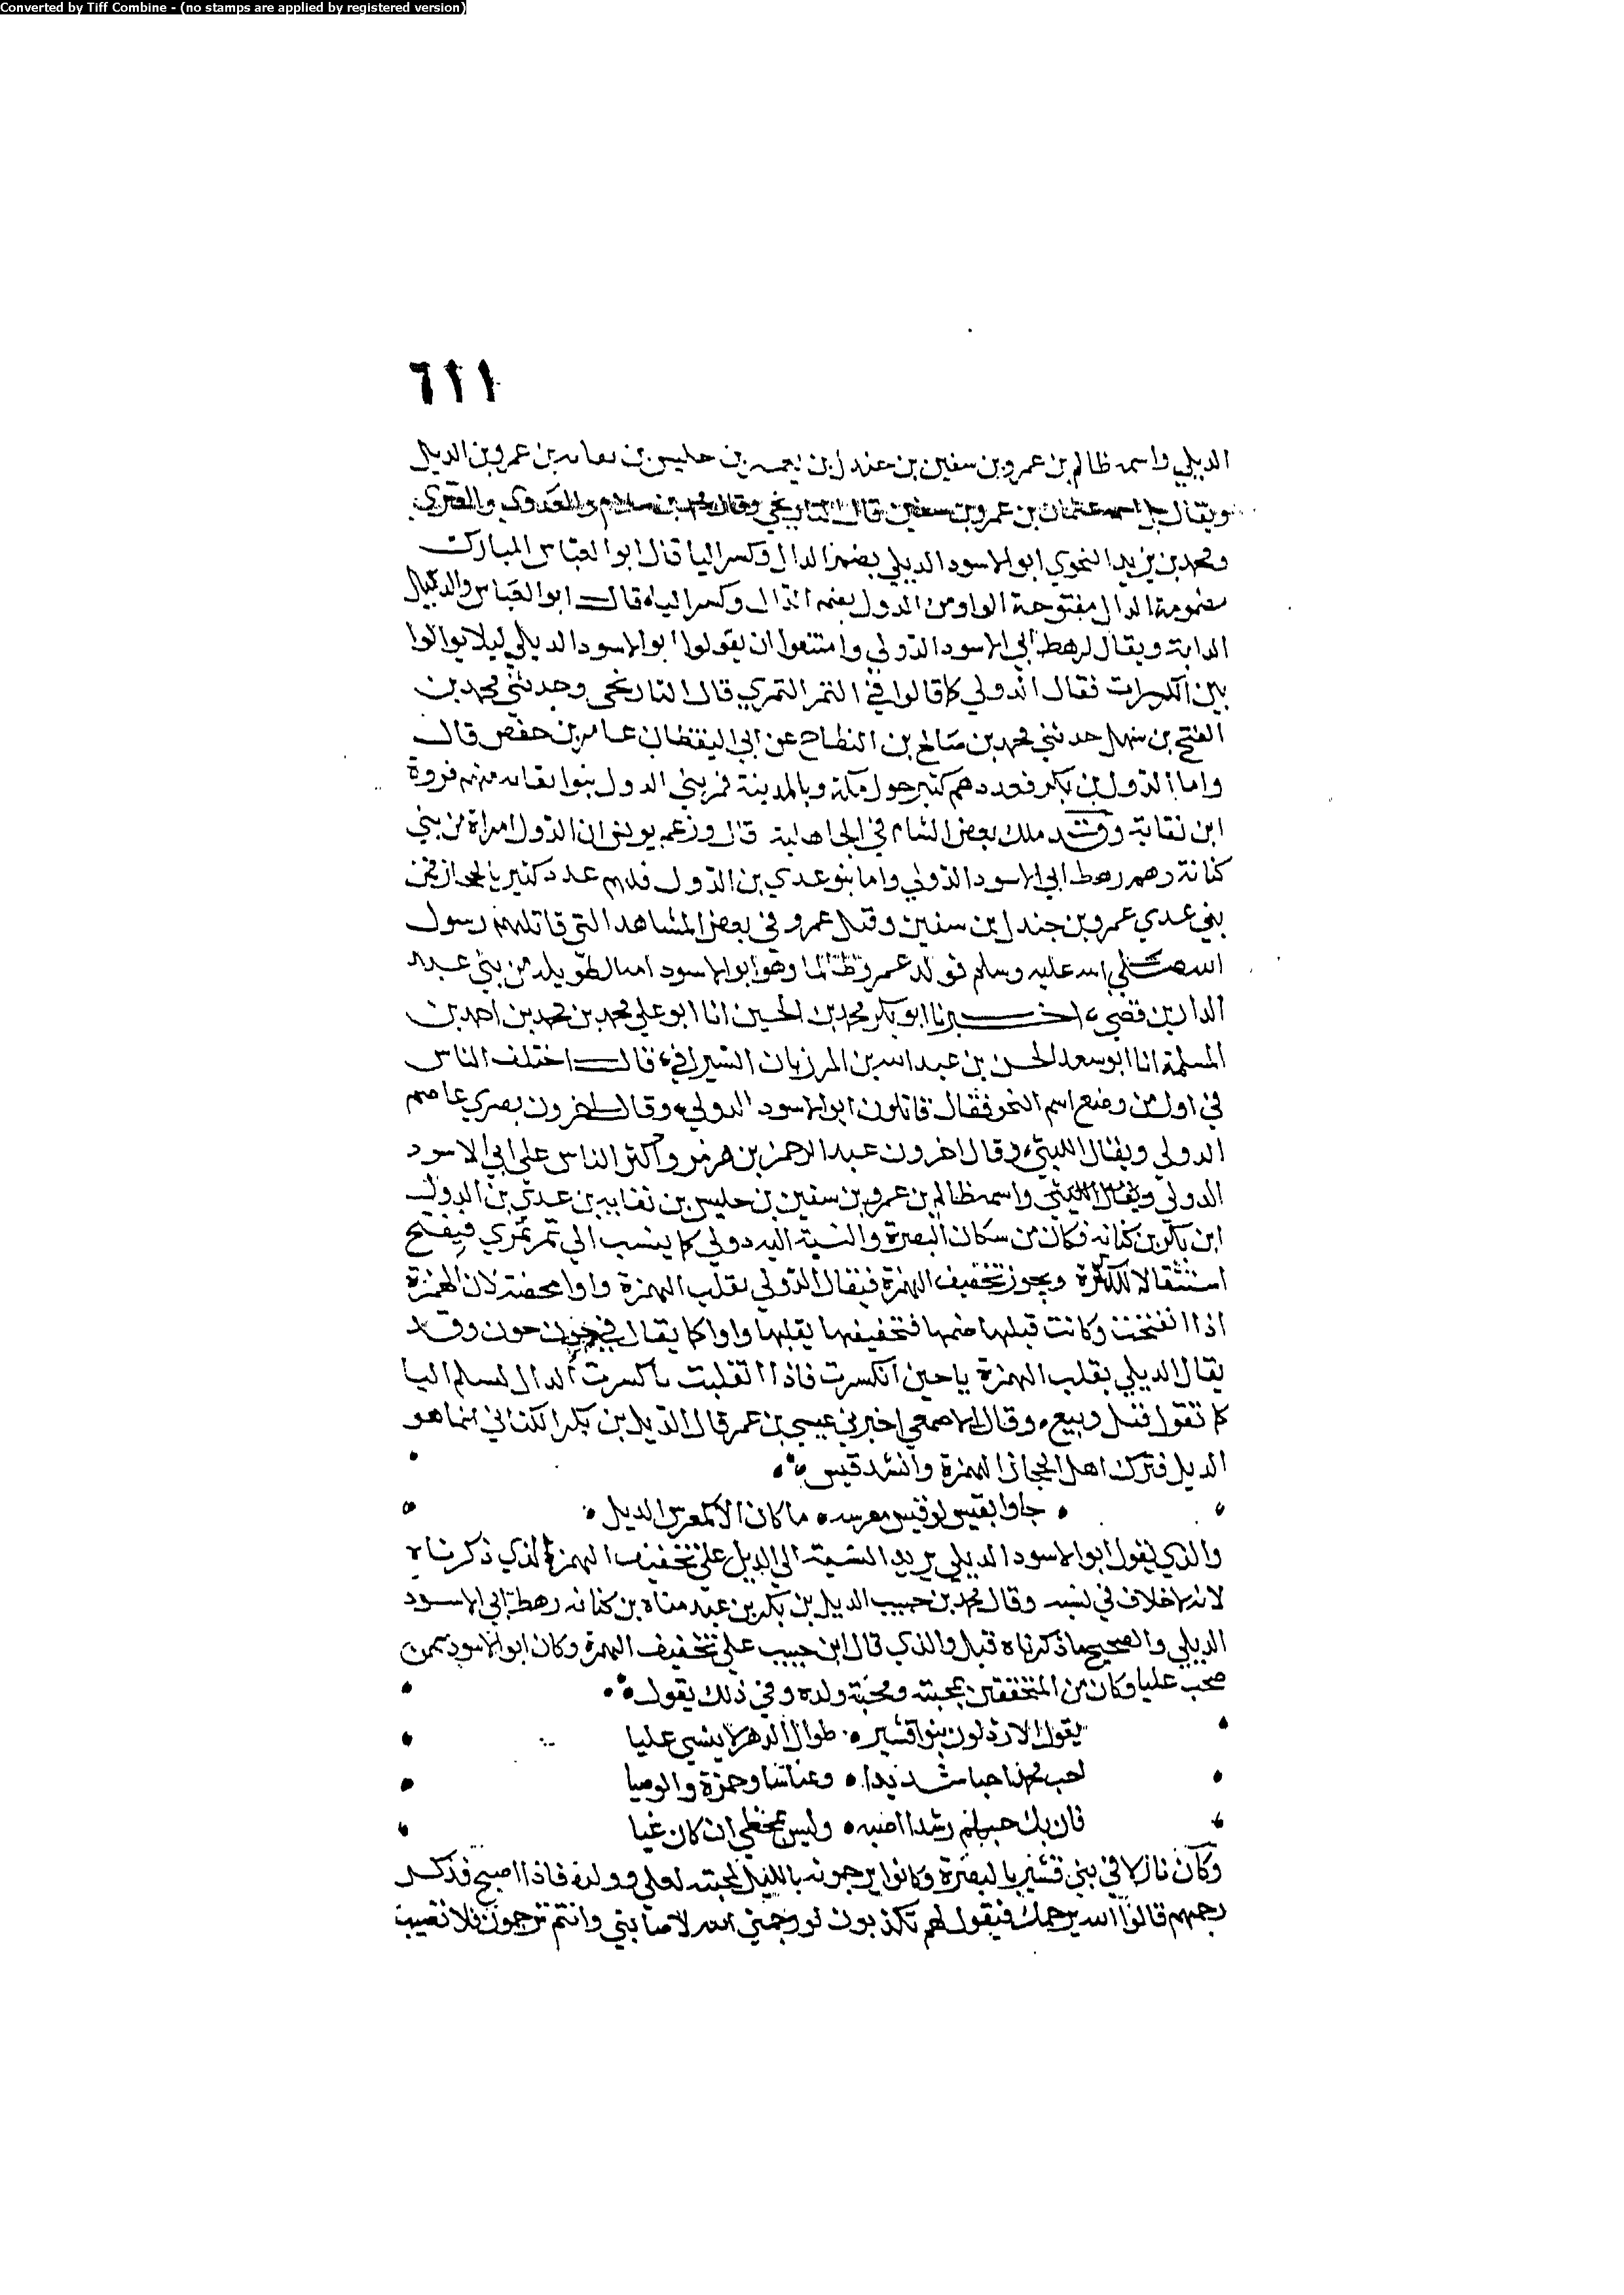 Converted by Tiff Combine - (no stamps are applied by registered version)
٦١١
الديلي واسمه ظالم بن عمرو بن سفين بن عندل بن يعمر بن حليس بن نفاثه بن عمرو بن الديل
ويقال بل اسمه عثمان بن عمرو بن سفين قال التاريخي وقال محمد بن سلام والعدوي
ومحمد بن يزيد النحوي ابو الاسود الديلي بضم الدال وكسر اليا قال ابو العباس المبارك
مضمومة الدال مفتوحة الواو من الدول بضم الدال وكسر الياء قال ابو العباس والدئل
الدابة ويقال لرهط ابي الاسود الدولي وامتنعوا ان يقولوا ابو الاسود الديلي ليلا يوالوا
بين الكسرات فقال الدولي كما قالوا في النمر النمري قال التاريخي وحدثني محمد بن
الفتح بن سهل حدثني محمد بن صالح بن النطاح عن ابي اليقظان عامر بن حفص قال
واما الدول بن بكر فعددهم كثير حول مكة وبالمدينة فمن بني الدول بنوا نفاثه منهم فروة
ابن نفاثة وقد ملك بعض الشام في الجاهلية قال وزعم يونس ان الدول امراة من بني
كنانة وهم رهط ابي الاسود الدولي واما بنو عدي بن الدول فلهم عدد كثير بالحجاز فمن
بني عدي عمرو بن جندل بن سفين وقتل عمرو في بعض المشاهد التي قاتلهم رسول
الله صلي الله عليه وسلم فولد عمرو ظالما وهو ابو الاسود امه الطويلة من بني عبد
الدار بن قصي اخبرنا ابو بكر محمد بن الحسين انا ابو علي محمد بن محمد بن احمد بن
المسلمة انا ابو سعد الحسن بن عبد الله بن المرزبان السيرافي قال اختلف الناس
في اول من وضع اسم النحو فقال قائلون ابو الاسود الدولي وقال اخرون نصر بن عاصم
الدولي ويقال الليثي وقال اخرون عبد الرحمن بن هرمز واكثر الناس علي ابي الاسود
الدولي ويقال الليثي واسمه ظالم بن عمرو بن سفين بن حليس بن نفاثه بن عدي بن الدول
ابن بكر بن كنانه فكان من سكان البصرة والنسبة اليه دولي كما ينسب الي نمر نمري فيفتح
استثقالا للكسرة ويجوز تخفيف الهمزة فيقال الدولي بقلب الهمزة واوا محضة لان الهمزة
اذا انفتحت وكانت قبلها ضمة فتخفيفها بقلبها واوا كما يقال في جون جون وقد
يقال الديلي بقلب الهمزة ياحين انكسرت فاذا انقلبت يا كسرت الدال لتسلم اليا
كما تقول قيل وبيع وقال الاصمعي اخبرني عيسي بن عمر قال الديل بن بكر الكناني انما هو
الديل فترك اهل الحجاز الهمزة وانشد قيس
جاوا بقيس لو قيس معرسه ما كان الا كمعرس الديل
والذي يقول ابو الاسود الديلي يريد النسبة الي الديل علي تخفيف الهمزة الذي ذكرناه
لانه لا خلاف في نسبه وقال محمد بن حبيب الديل بن بكر بن عبد مناه بن كنانه رهط ابي الاسود
الديلي والصحيح ما ذكرناه قبل والذي قال ابن حبيب علي تخفيف الهمزة وكان ابو الاسود ممن
صحب عليا وكان من المتحققين بمحبته ومحبة ولده وفي ذلك يقول
يقول الارذلون بنو قشير طوال الدهر لا ينسي عليا
احب محمدا حبا شديدا وعباسا وحمزة والوصيا
فان يك حبهم رشدا اصبه وليس بمخطي ان كان غيا
وكان نازلا في بني قشير بالبصرة وكانوا يرجمونه بالليل لمحبته لعلي وولده فاذا اصبح فذكر
رجمهم قالوا الله يرجمك فيقول لهم تكذبون لو رجمني الله لاصابني وانتم ترجمون فلا تصيب